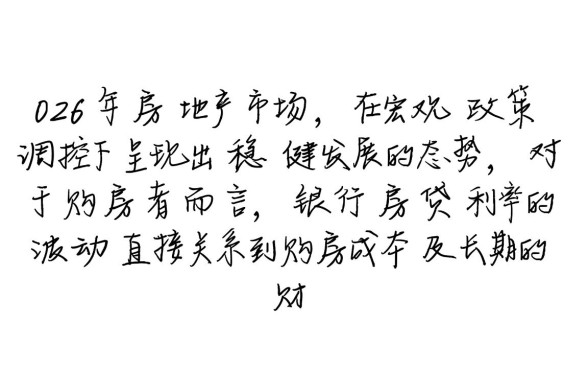 026年房地产市场，在宏观政策
调控下呈现出稳健发展的态势，对
于购房者而言，银行房贷利率的
波动直接关系到购房成本及长期的
财